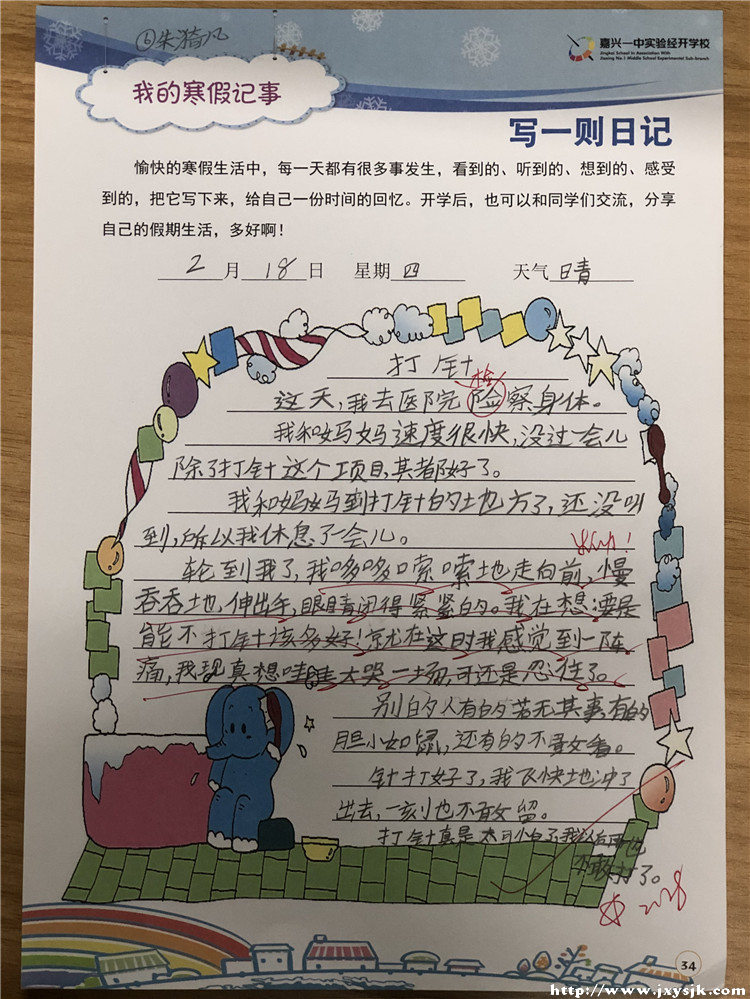 ⑥朱漪凡
嘉兴一中实验经开学校
我的寒假记事
写一则日记
愉快的寒假生活中，每一天都有很多事发生，看到的、听到的、想到的、感受
到的，把它写下来，给自己一份时间的回忆。开学后，也可以和同学们交流，分享
自己的假期生活，多好啊！
2月18日 星期四 天气晴
打针
检
这天，我去医院险察身体。
我和妈妈速度很快，没过一会儿
除了打针这个项目，其都好了。
我和妈妈到打针的地方了，还没叫
到，所以我休息了一会儿。
轮到我了，我哆哆嗦嗦地走向前，慢
吞吞地，伸出手，眼睛闭得紧紧的。我在想：要是
能不打针该多好！就在这时我感觉到一阵
痛，我现真想哇哇大哭一场，可还是忍住了。
别的人有的若无其事，有的
胆小如鼠，还有的不敢看。
针打好了，我飞快地冲了
出去，一刻也不敢留。
打针真是太可怕了，我以后再也
不敢打了。
2.28
34
http://www.jxysjk.com